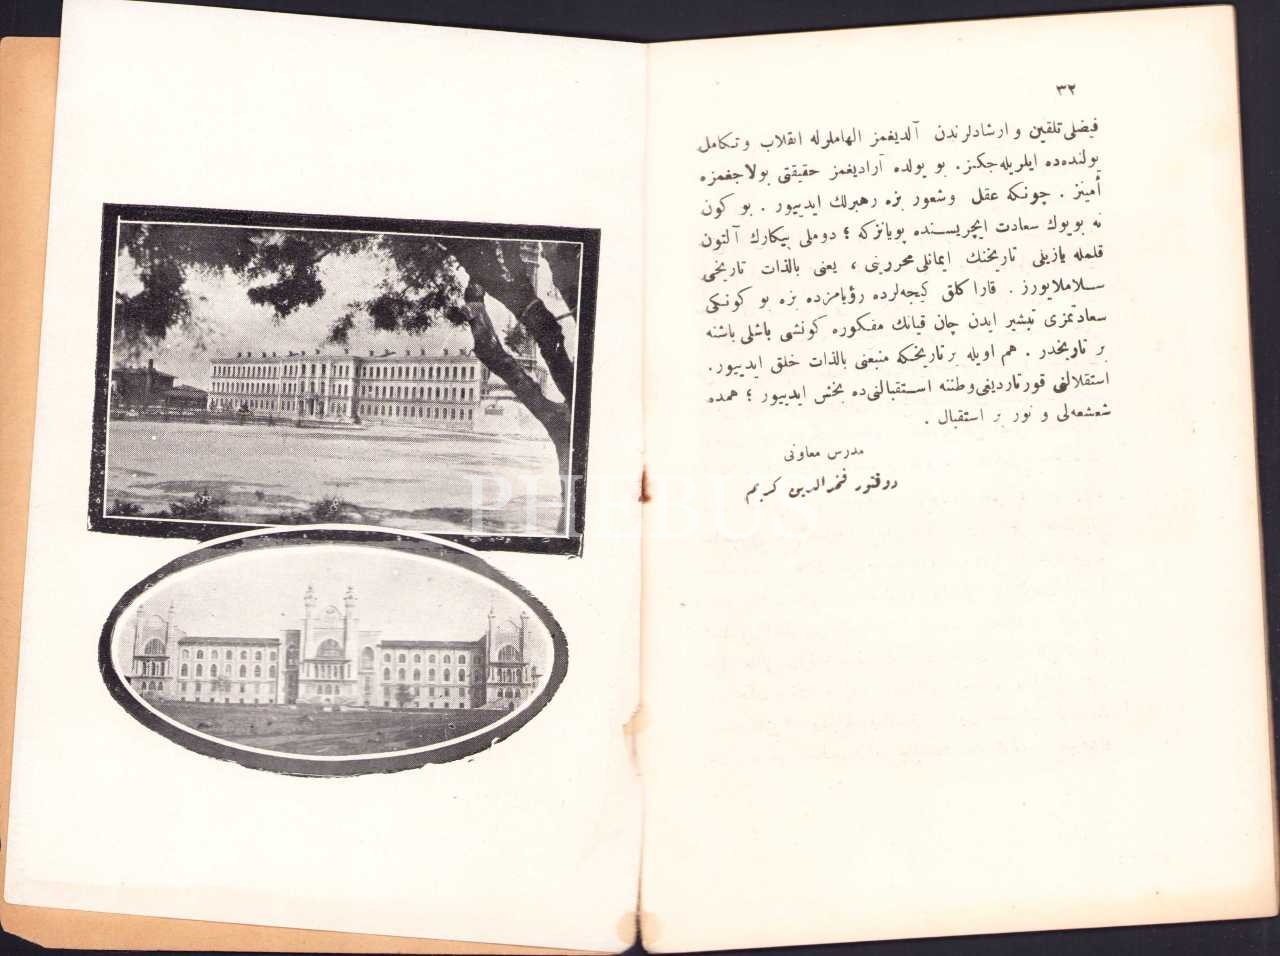 ٣٢
فيضلى تلقين و ارشادلرندن آلديغمز الهاملرله انقلاب و تكامل
يولنده‌ده ايلريله‌جكز. بو يولده آراديغمز حقيقتى بولاجغمزه
أمينز . چونكه عقل وشعور بزه رهبرلك ايدييور . بو كون
نه بويوك سعادت ايچريسنده يويانزكه ؛ دوملى پيكارك آلتون
قلمله يازيلى تاريخنك ايمانلى محررينى ، يعنى بالذات تاريخى
سلاملايورز . قارا كلق كيجه‌لرده رؤيامزده بزه بو كونكى
سعادتمزى تبشير ايدن چان قيانك مفكوره كونشى باشلى باشنه
بر تاريخدر . هم اويله بر تاريخكه منبعنى بالذات خلق ايدييور.
استقلالنى قورتارديغى وطننه استقبالنى‌ده بخش ايدييور ؛ همده
شعشعه‌لى و نور بر استقبال .
مدرس معاونى
دوقتور فخرالدين كريم
PHEBUS